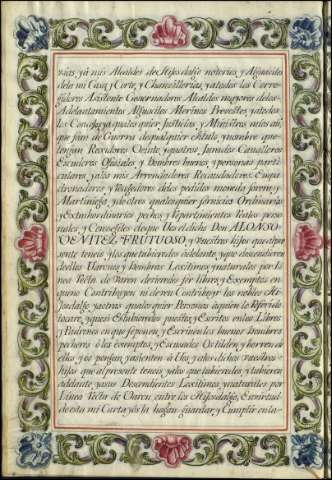 rias, ya mis Alcaldes de Hijos dalgo notorios, y Alguaciles
de la mi Casa, y Corte, y Chancillerias, ya todos los Corre-
gidores Asistente Governadores Alcaldes mayores de los
Adelantamientos Alguaciles Merinos Prevostes, ya todos
los Conçejos, ya
que sean de Guerra de qualquier titulo, y nombre que
tengan Rexidores Veinte y quatros, Jurados Cavalleros
Escuderos Ofiçiales, y hombres buenos, y personas parti-
culares, ya los mis Arrendadores Recaudadores Empa-
dronadores, y Cojedores de los pedidos moneda forera, y
Martiniega, y de otros qualesquier serviçios Ordinarios
y Extrahordinarios pechos, y Repartimientos Reales perso-
nales, y Conçejiles de que Vos el dicho Don ALONSO
BENITEZ FRUTUOSO, y vuestros hijos que al pre-
sente teneis, y los que tubiereis de adelante, y que desçendieren
de ellos Varones, y hembras Lexitimos, y naturales por li-
nea Recta de Varon devierdes ser libres, y Exemptos en
que no Contribuyen ni deven Contribuir los nobles Hi-
josdalgo, ya otras qualesquier Personas aquien lo Referido
tocare, y quasi Estubieredes puestos, y Escritos en los Libros
y Padrones en que se ponen, y Escriven los buenos hombres
pecheros, e los esemptos, y Escusados Os tilden, y borren de
ellos, y os pongan, y asienten a Vos, ya los dichos vuestros
hijos que al presente teneis, ya los que tubieredes, y tubieren
adelante, ya sus Desçendientes Lexitimos, y naturales por
Linea Recta de Varon entre los Hijosdalgo, En virtud
de esta mi Carta, y os la hagan guardar, y Cumplir en la-